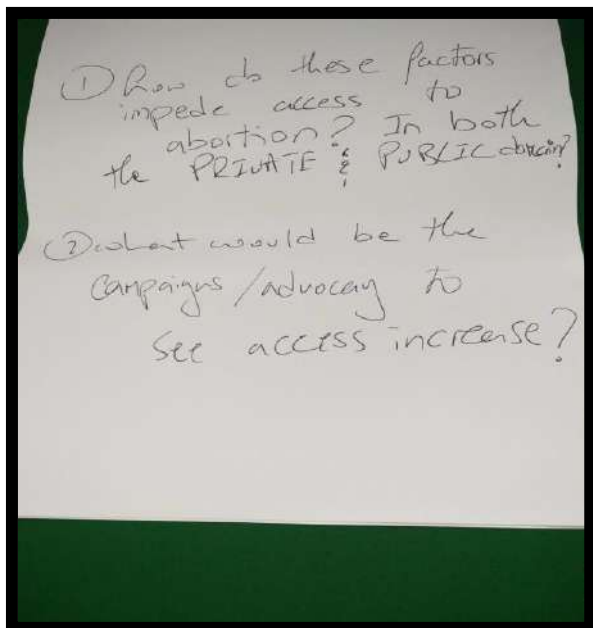 ① How do these factors
impede access to
abortion? In both
the PRIVATE & PUBLIC domain?
② what would be the
campaigns/advocacy to
see access increase?